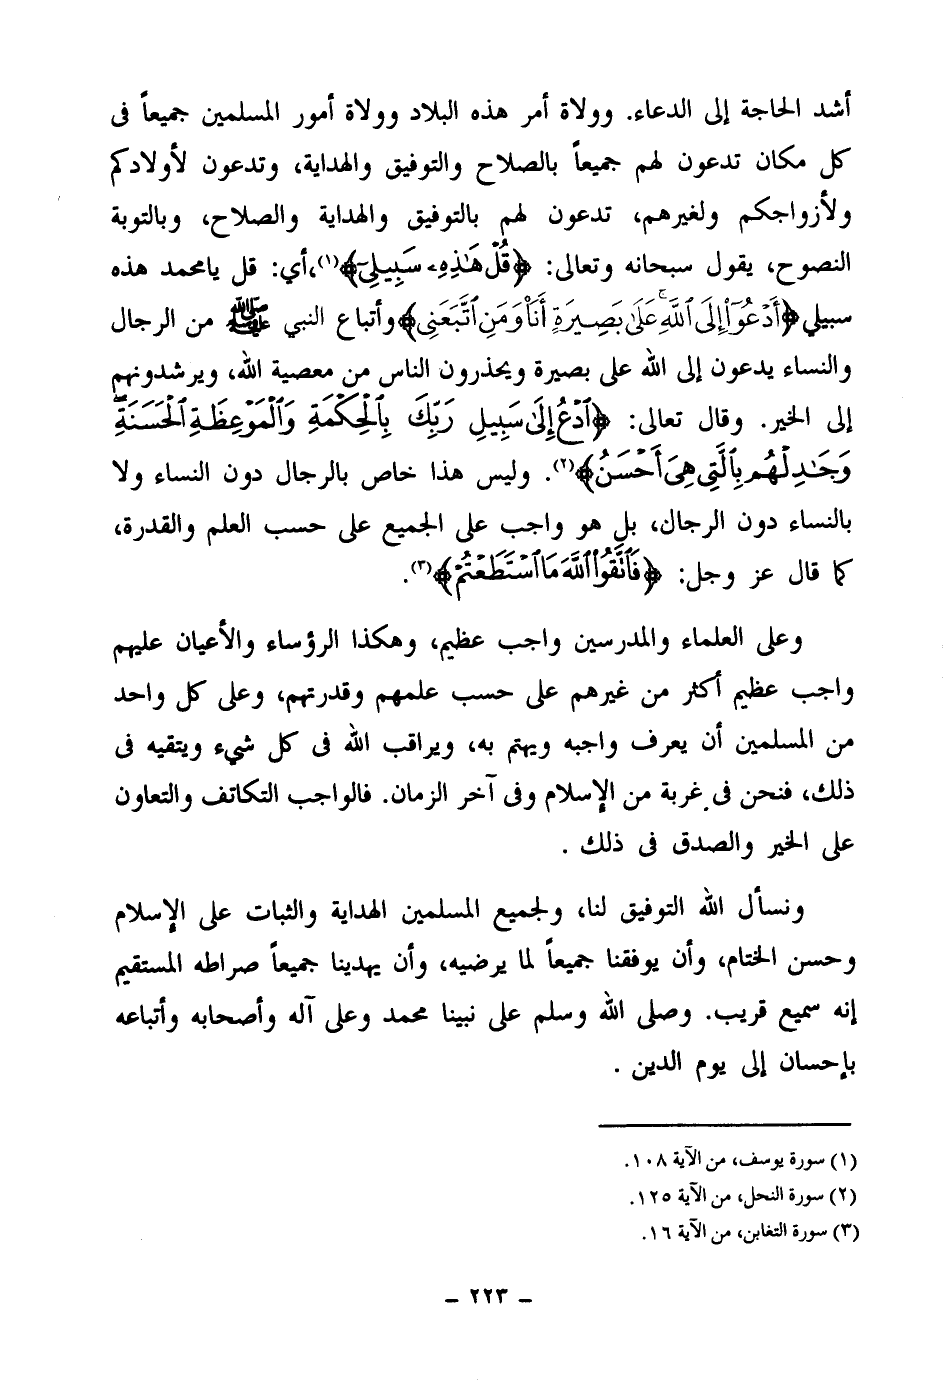 أشد الحاجة إلى الدعاء. وولاة أمر هذه البلاد وولاة أمور المسلمين جميعاً فى
كل مكان تدعون لهم جميعاً بالصلاح والتوفيق والهداية، وتدعون لأولادكم
ولأزواجكم ولغيرهم، تدعون لهم بالتوفيق والهداية والصلاح، وبالتوبة
النصوح، يقول سبحانه وتعالى: ﴿قُلْ هَٰذِهِۦ سَبِيلِىٓ﴾(١)،أي: قل يامحمد هذه
سبيلي﴿أَدْعُوٓا۟ إِلَى ٱللَّهِ ۚ عَلَىٰ بَصِيرَةٍ أَنَا۠ وَمَنِ ٱتَّبَعَنِى﴾وأتباع النبي ﷺ من الرجال
والنساء يدعون إلى الله على بصيرة ويحذرون الناس من معصية الله، ويرشدونهم
إلى الخير. وقال تعالى: ﴿ٱدْعُ إِلَىٰ سَبِيلِ رَبِّكَ بِٱلْحِكْمَةِ وَٱلْمَوْعِظَةِ ٱلْحَسَنَةِ ۖ
وَجَٰدِلْهُم بِٱلَّتِى هِىَ أَحْسَنُ﴾(٢). وليس هذا خاص بالرجال دون النساء ولا
بالنساء دون الرجال، بل هو واجب على الجميع على حسب العلم والقدرة،
كما قال عز وجل: ﴿فَٱتَّقُوا۟ ٱللَّهَ مَا ٱسْتَطَعْتُمْ﴾(٣).
وعلى العلماء والمدرسين واجب عظيم، وهكذا الرؤساء والأعيان عليهم
واجب عظيم أكثر من غيرهم على حسب علمهم وقدرتهم، وعلى كل واحد
من المسلمين أن يعرف واجبه ويهتم به، ويراقب الله فى كل شيء ويتقيه فى
ذلك، فنحن فى غربة من الإسلام وفى آخر الزمان. فالواجب التكاتف والتعاون
على الخير والصدق فى ذلك .
ونسأل الله التوفيق لنا، ولجميع المسلمين الهداية والثبات على الإسلام
وحسن الختام، وأن يوفقنا جميعاً لما يرضيه، وأن يهدينا جميعاً صراطه المستقيم
إنه سميع قريب. وصلى الله وسلم على نبينا محمد وعلى آله وأصحابه وأتباعه
بإحسان إلى يوم الدين .
(١) سورة يوسف، من الآية ١٠٨.
(٢) سورة النحل، من الآية ١٢٥.
(٣) سورة التغابن، من الآية ١٦.
ـ ٢٢٣ ـ